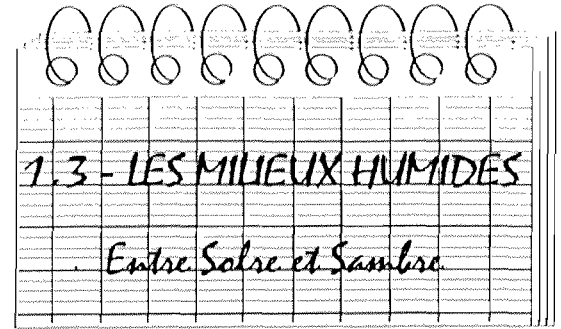 1.3 - LES MILIEUX HUMIDES
Entre Solre et Sambre